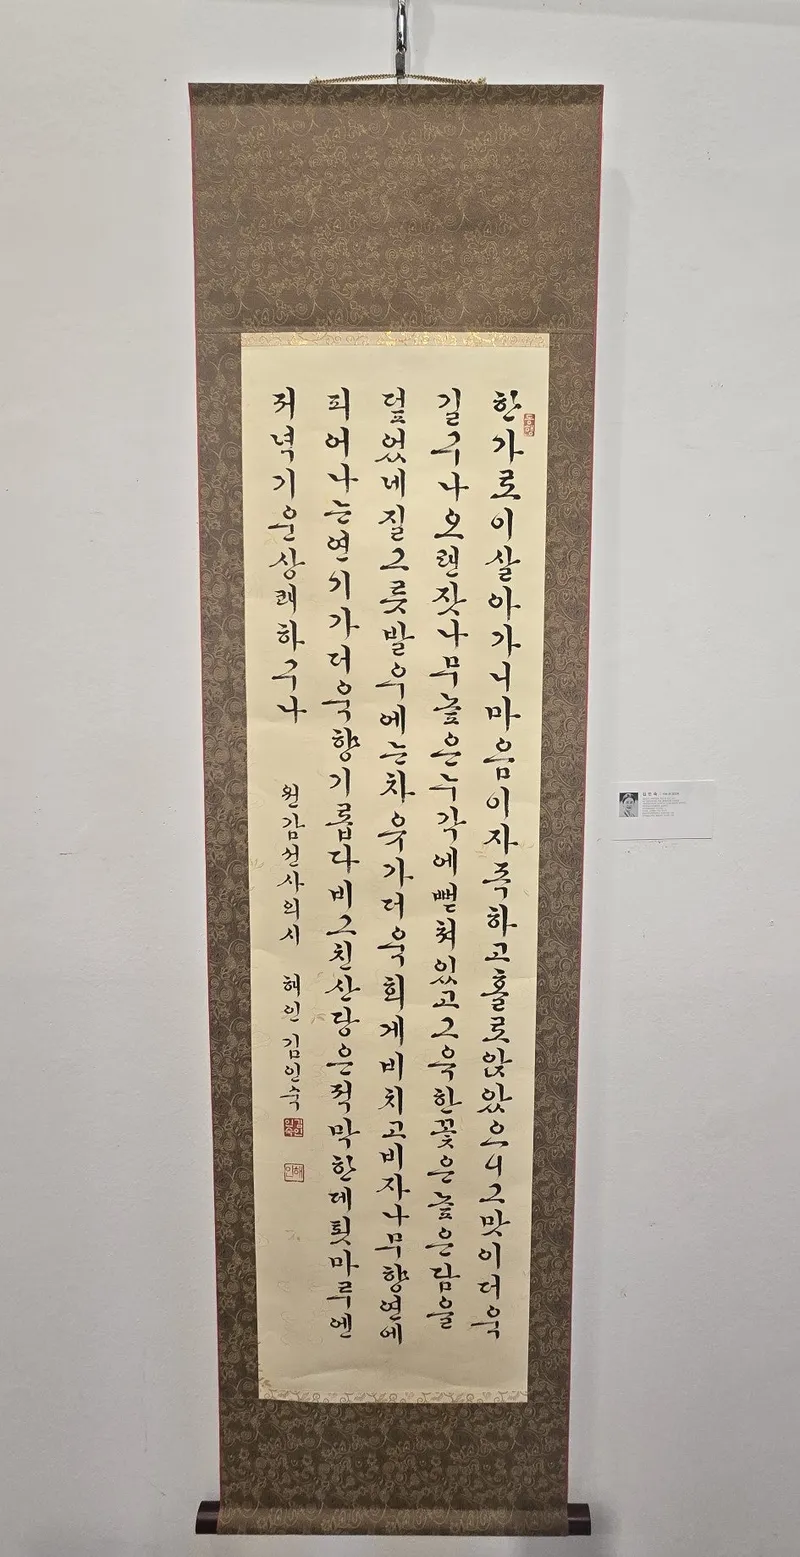 한가로이살아가니마음이자족하고홀로앉았으니그맛이더욱
길구나오랜잣나무높은누각에뻗쳐있고그윽한꽃은높은담을
덮었네질그릇발우에는차윳가더욱희게비치고비자나무향연에
피어나는연기가더욱향기롭다비그친산당은적막한데툇마루엔
저녁기운상쾌하구나
원감선사의시 해인김인숙
김인숙
해인